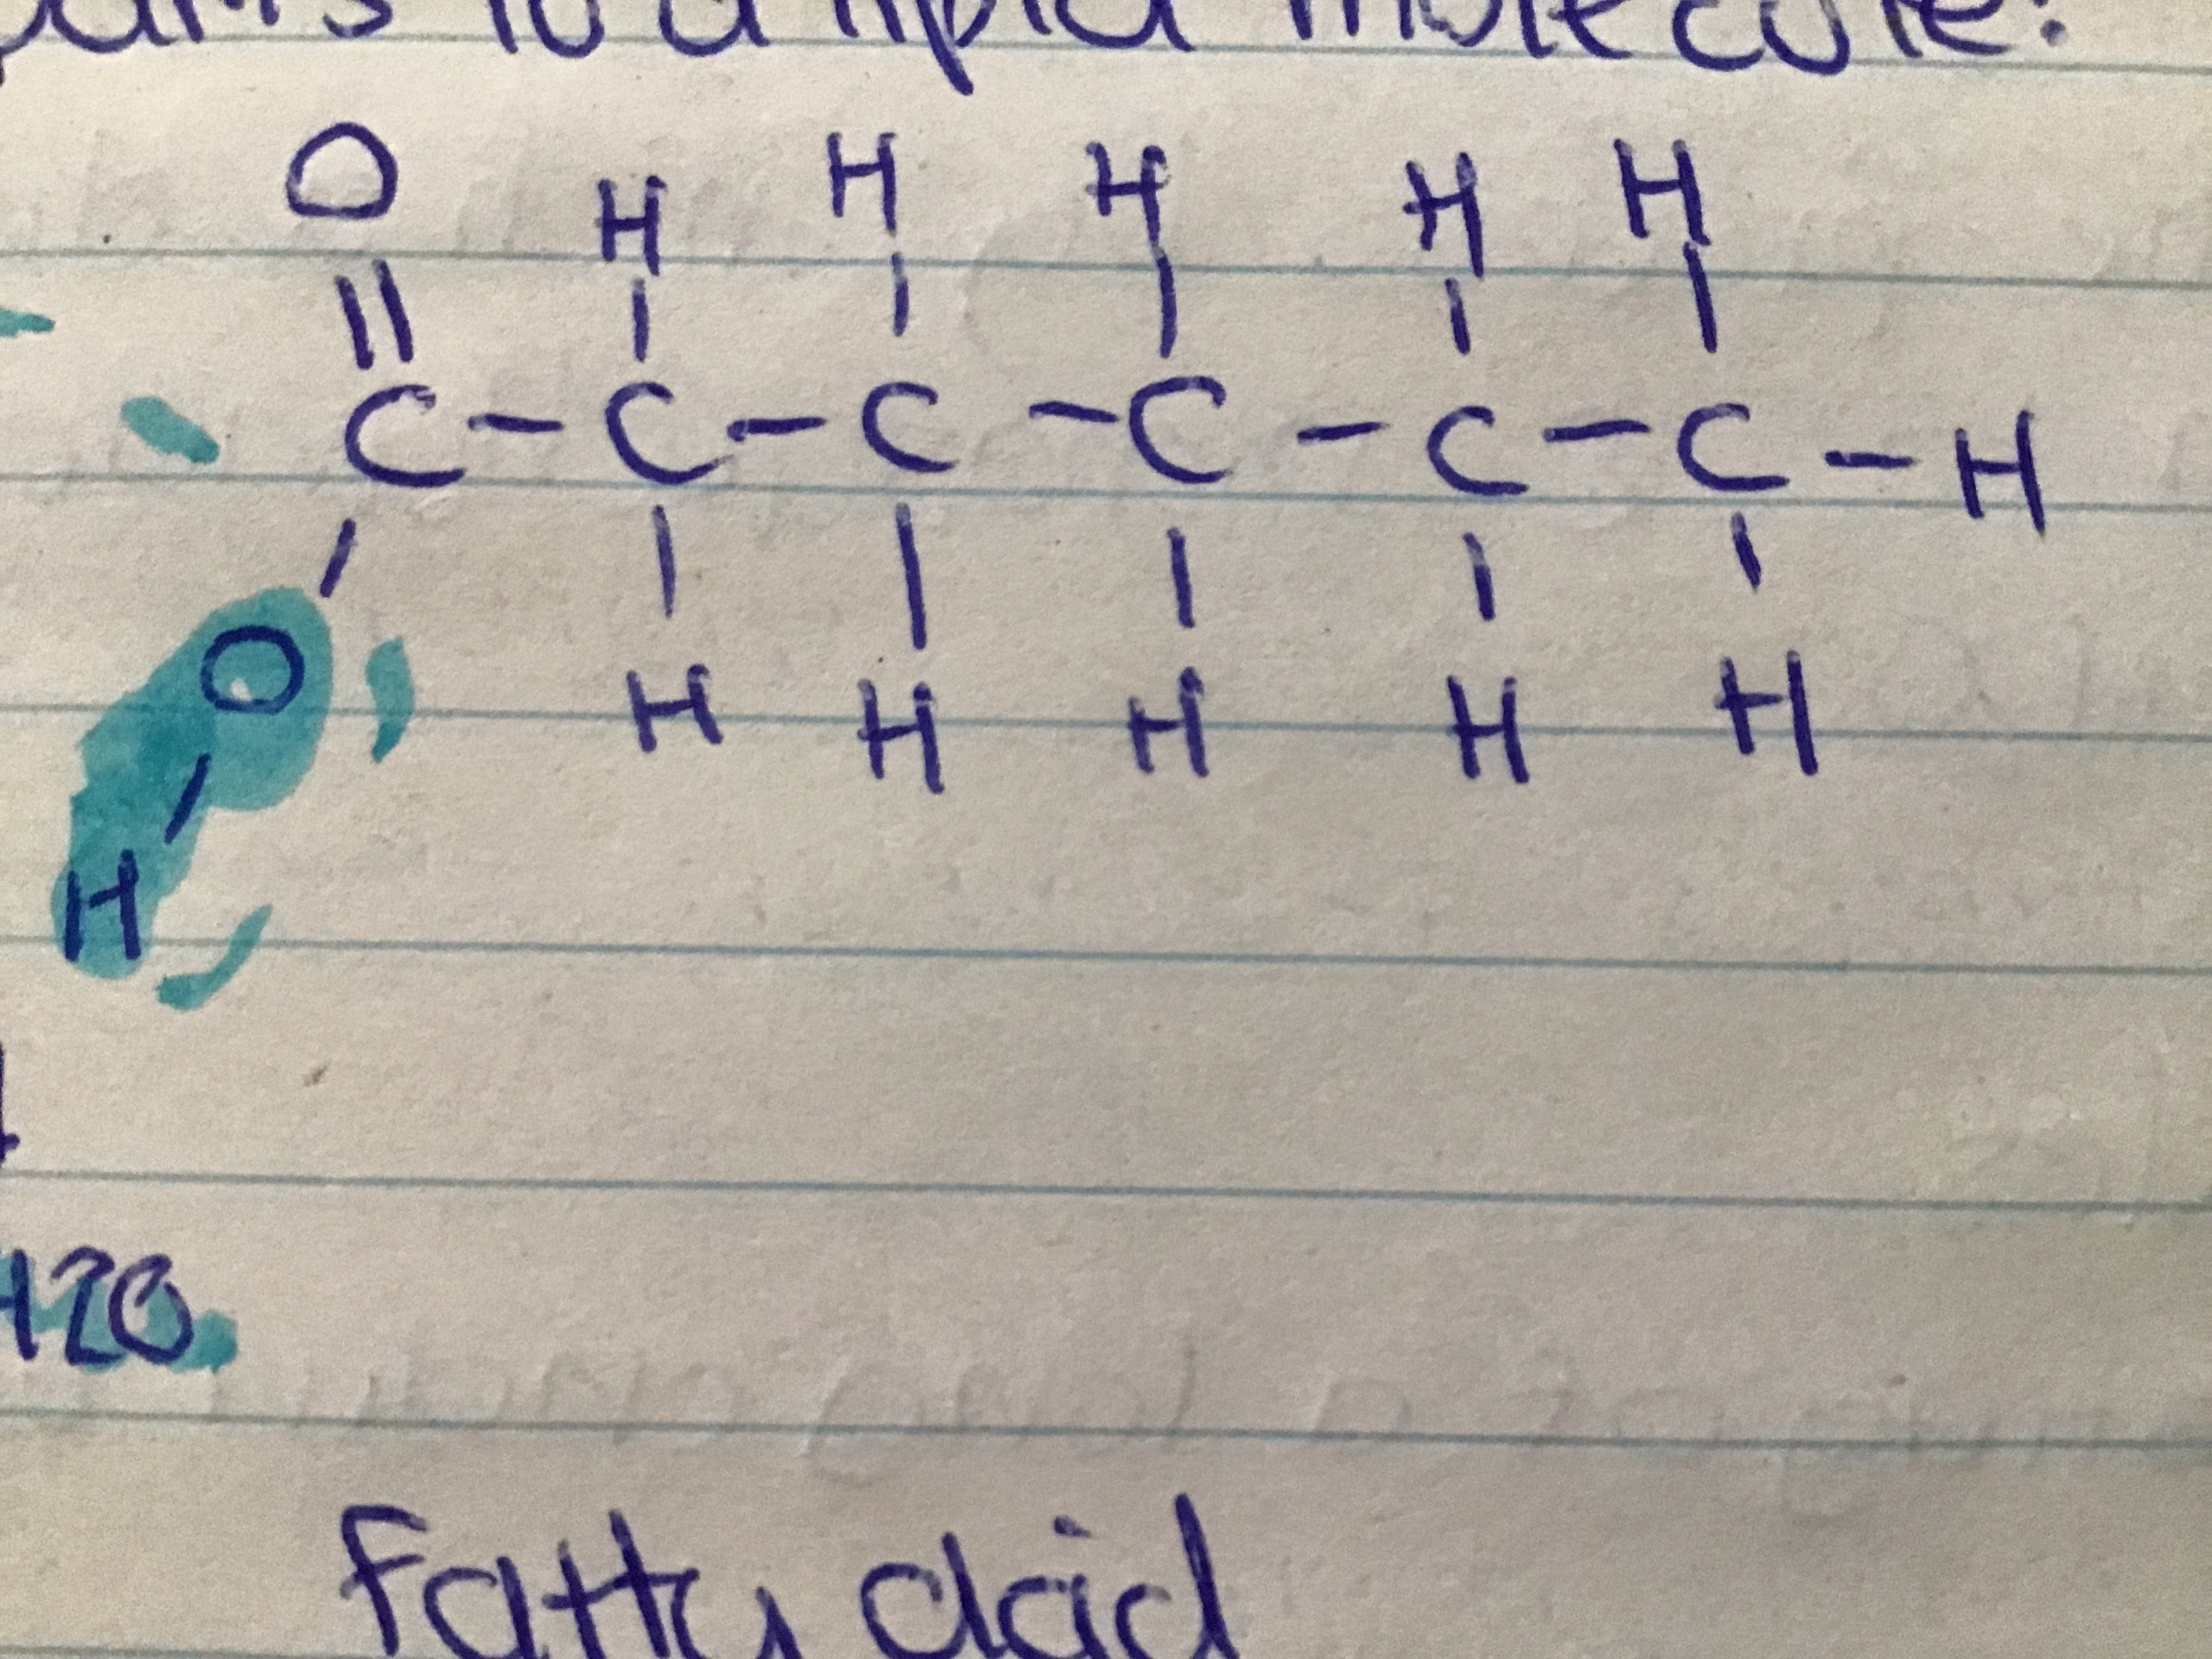 to a lipid molecule:
O H H H H H
C - C - C - C - C - C - H
O H H H H H
H
H20
Fatty acid